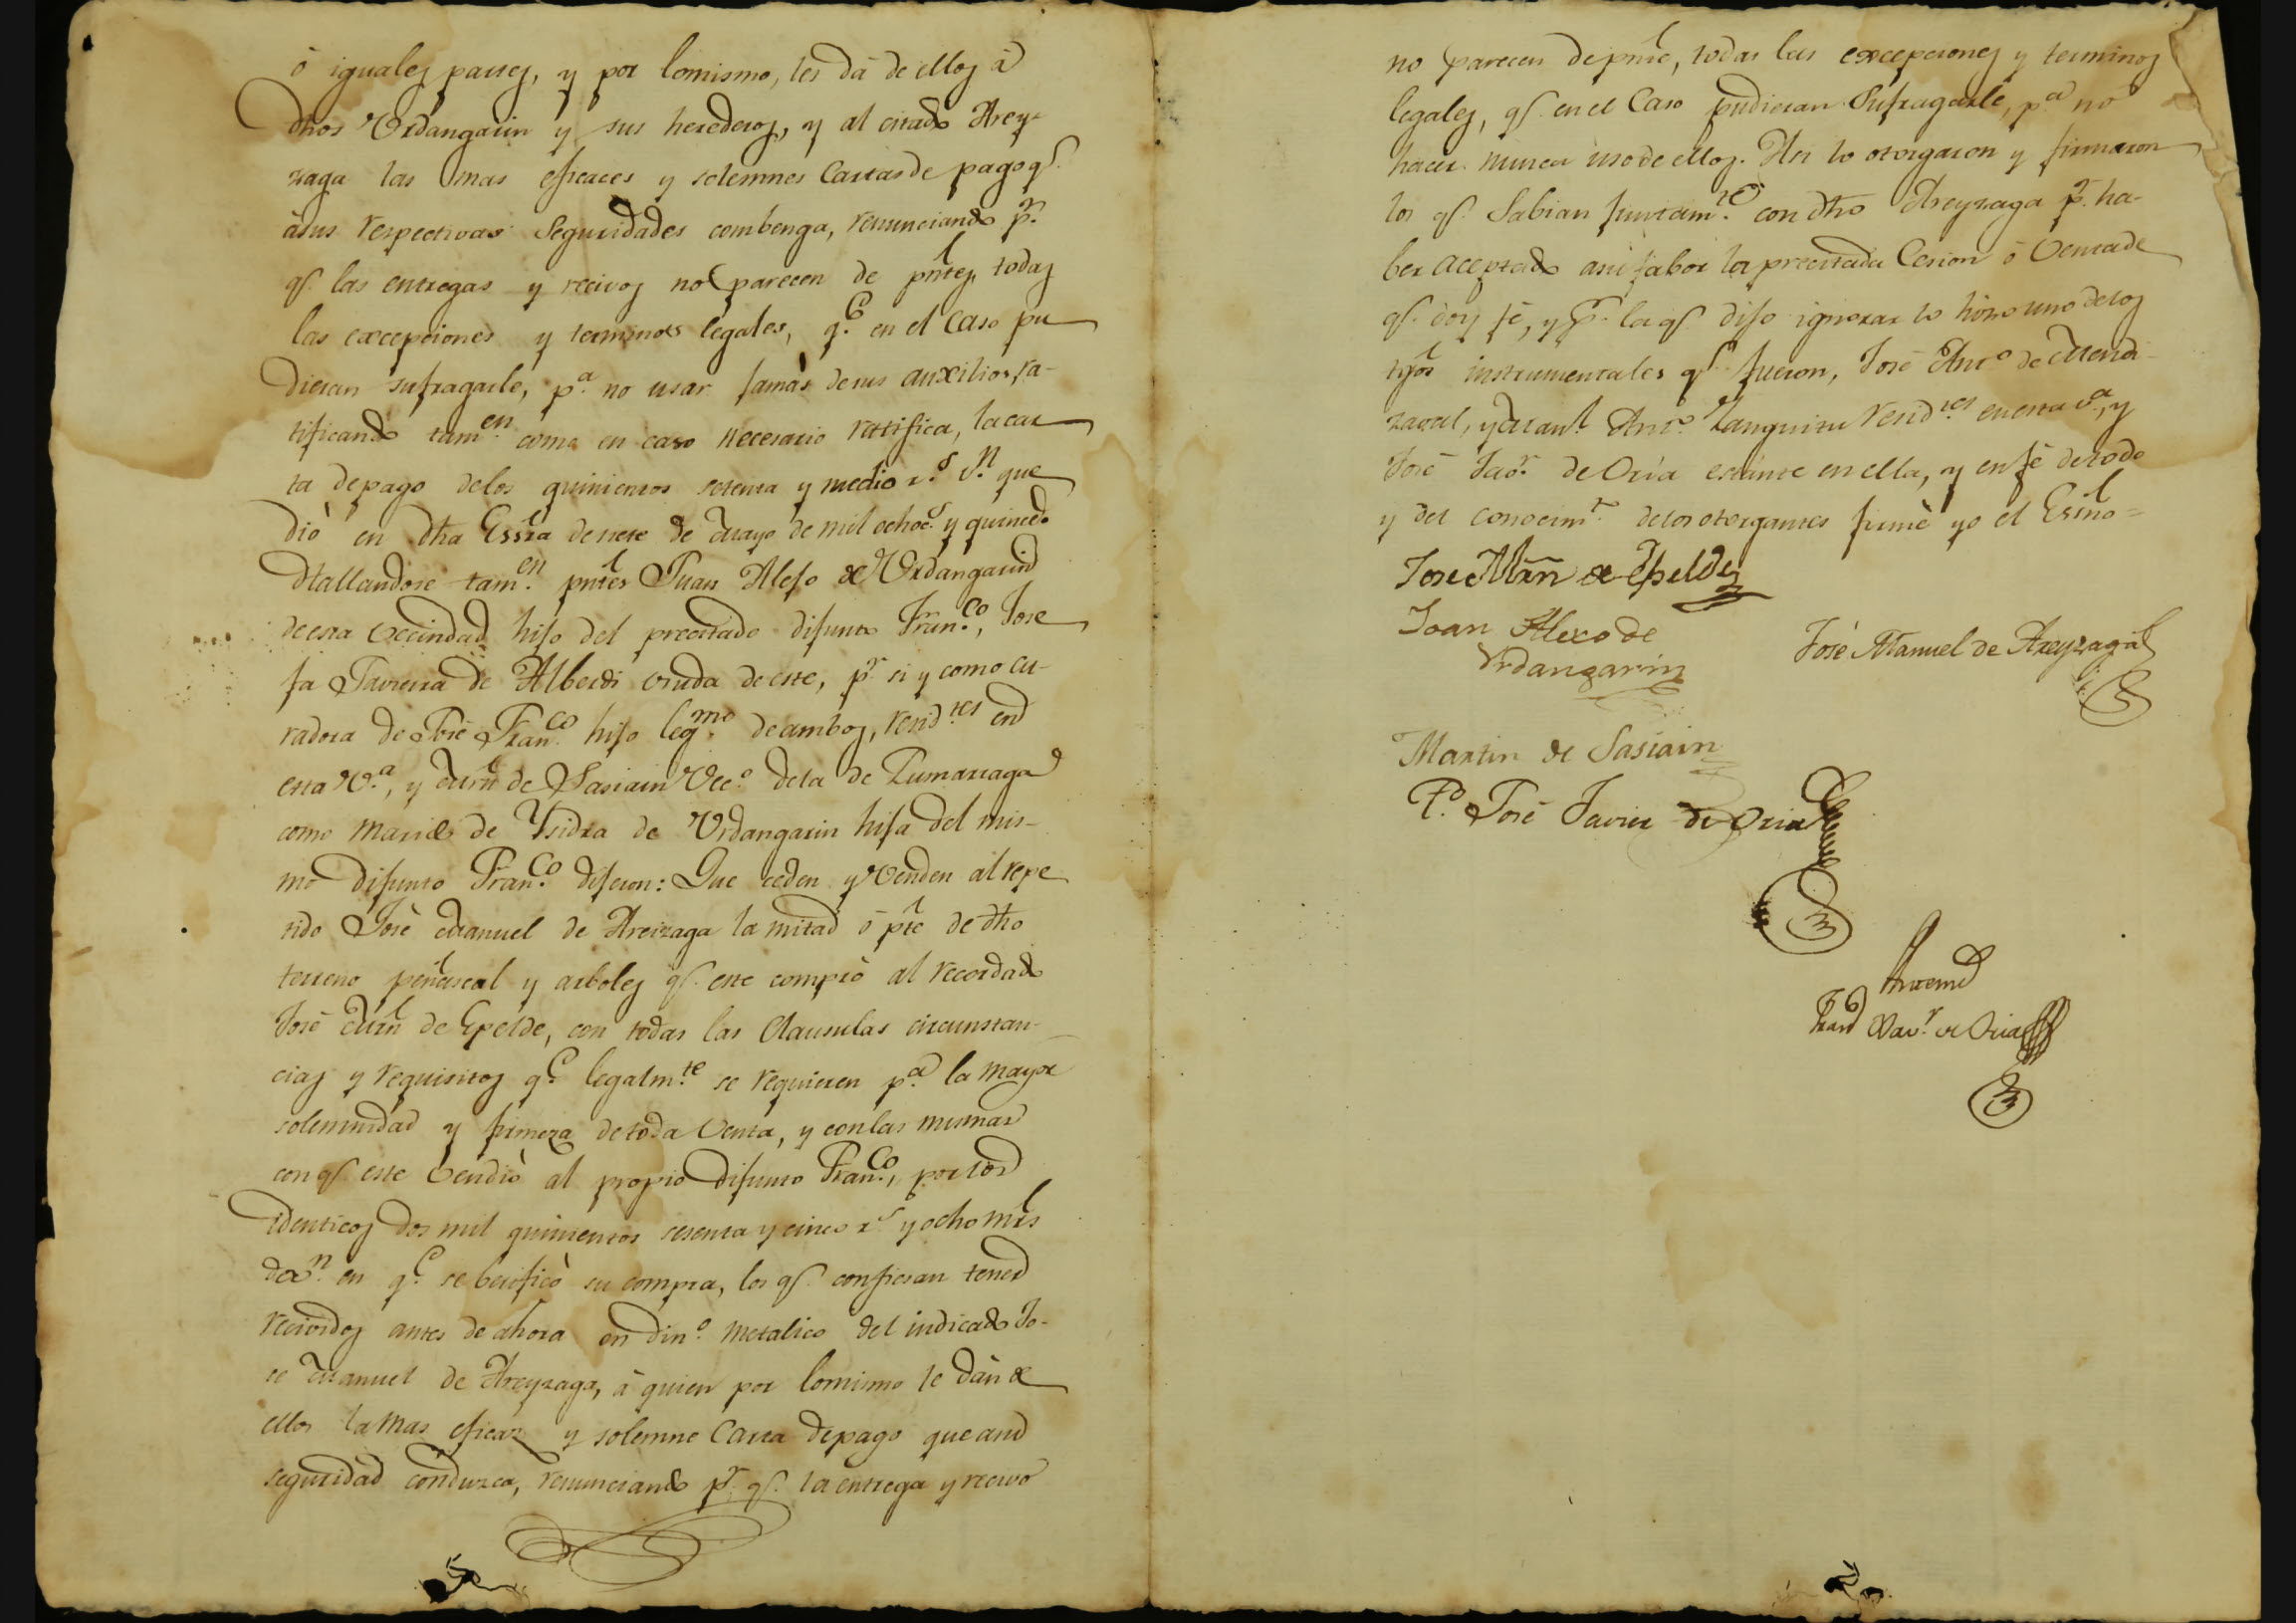 ó iguales partes, y por lo mismo, les dá de ellos á
dhos Vrdangarin y sus herederos, y al citado Arey-
zaga las mas eficaces y solemnes Cartas de pago qe.
á sus respectivas Seguridades combenga, renunciando pr.
qe. las entregas y recivos no parecen de pntes, todas
las excepciones y terminos legales, qe. en el Caso pu
dieran sufragarle, pa. no usar jamas de sus auxilios, ra-
tificando tamen. como en caso necesario ratifica, la car
ta de pago delos quinientos setenta y medio rs. vn. que
dió en dha Essra de siete de Mayo de mil ochocs. y quince.
Hallandose tamen. pntes Juan Alejo de Vrdangarin
de esta Vecindad hijo del precitado difunto Franco., Jose
fa Javiera de Alberdi viuda de este, pr. si y como cu-
radora de José Franco. hijo legmo. de ambos, residtes en
esta Va., y Mrn de Sasiain Veco. dela de Zumarraga
como marido de Ysidra de Vrdangarin hija del mis-
mo difunto Franco. dijeron: Que ceden y Venden al repe
tido José Manuel de Areizaga la mitad ó pte de dho
terreno peñascal y arboles qe. este compró al recordado
José Mrn de Epelde, con todas las Clausulas circunstan-
cias y requisitos qe. legalmte. se requieren pa. la mayor
solemnidad y firmeza de toda Venta, y con las mismas
con qe. este Vendió al propio difunto Franco., por los
identicos dos mil quinientos sesenta y cinco rs y ocho mrs
de vn. en qe. se berificó su compra, los qe. confiesan tener
recividos antes de ahora en dino. metalico del indicado Jo-
se Manuel de Areyzaga, á quien por lo mismo le dán de
ellos la mas eficaz y solemne Carta de pago que a su
seguridad conduzca, renunciando pr. qe. la entrega y recivo
no parecen de pnte, todas las excepciones y terminos
legales, qe. en el Caso pudieran Sufragarle, pa. no
hacer nunca uso de ellos. Asi lo otorgaron y firmaron
los qe. Sabian juntamte. con dho Areyzaga pr. ha-
ber aceptado a su fabor la precitada Cesion ó Venta de
qe. doy fé, y pr. la qe dijo ignorar lo hizo uno de los
tgos instrumentales qe fueron, José Anto. de
y Manl. Anto. residtes. en esta va., y
José Javr. de Oria estante en ella, y en fé de todo
y del conocimto. delos otorgantes firmé yo el Esno =
Jose Mrn de Epelde
Joan Alexo de
Vrdangarin
José Manuel de Areyzaga
Martin de Sasiain
To. José Javier de Oria
Antemi
Juan Xavr. de Oria